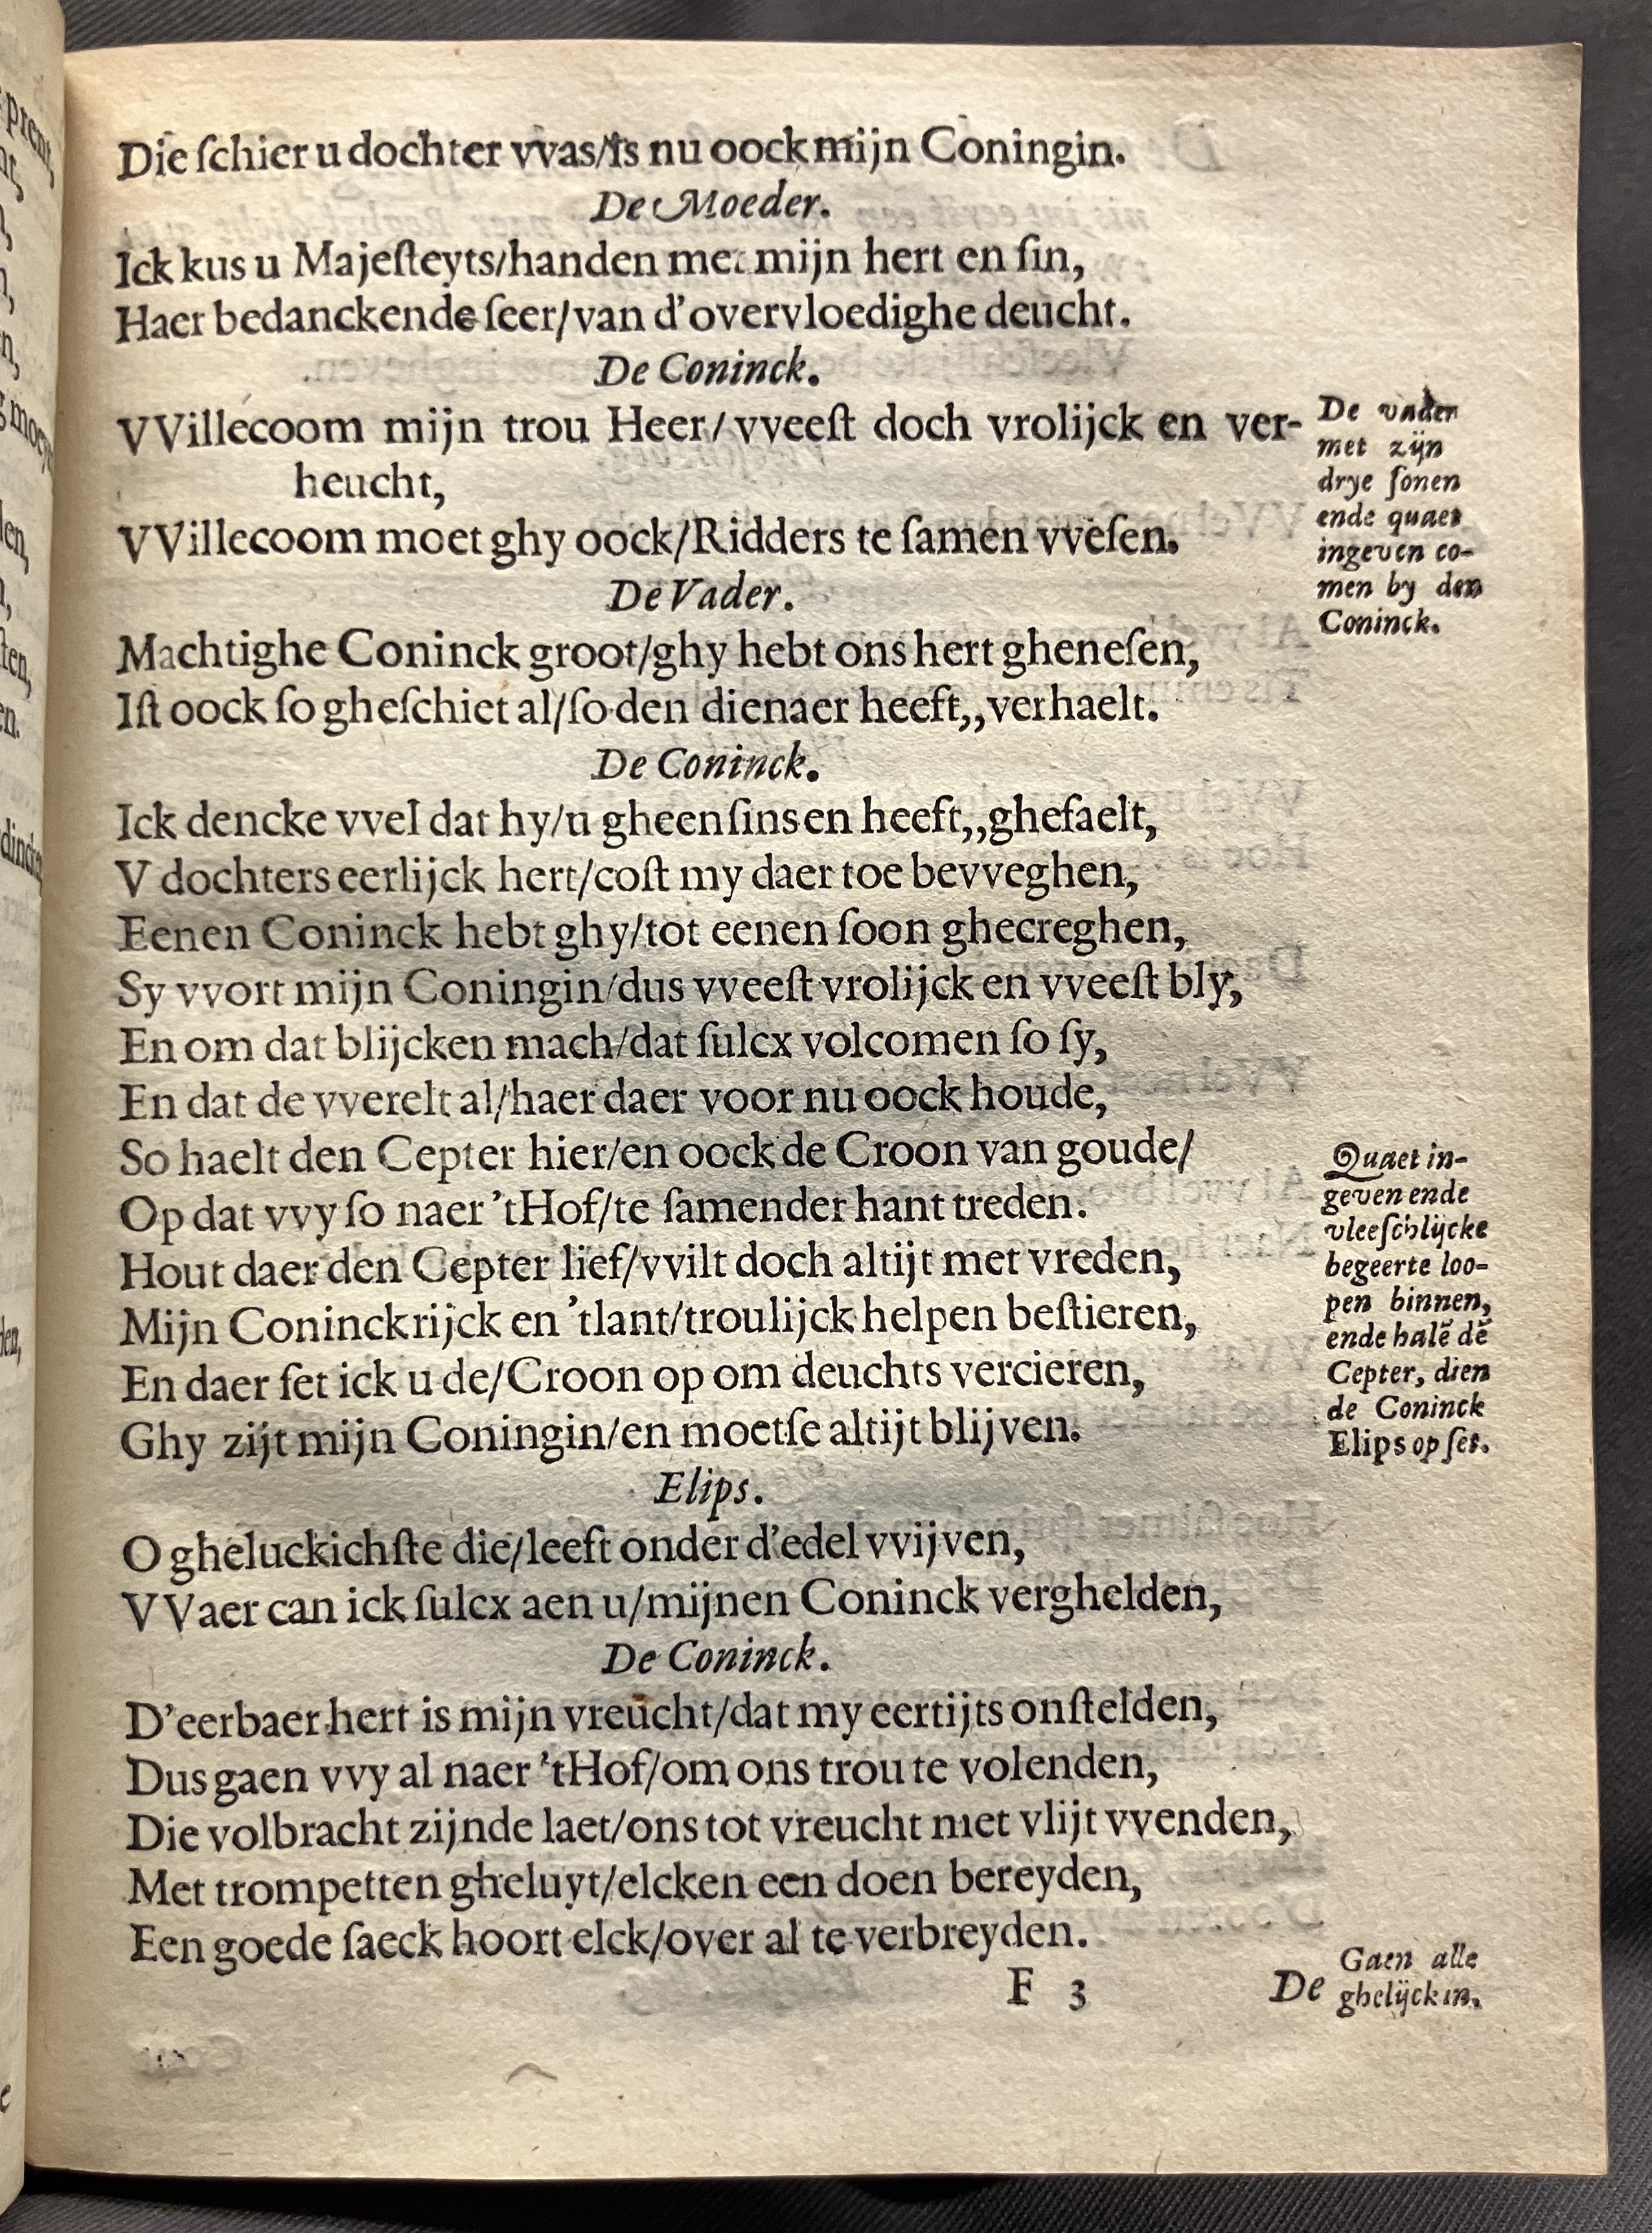 Die ſchier u dochter vvas/is nu oock mijn Coningin.
De Moeder.
Ick kus u Majeſteyts/handen met mijn hert en ſin,
Haer bedanckende ſeer/van d'overvloedighe deucht.
De Coninck.
VVillecoom mijn trou Heer/vveeſt doch vrolijck en ver-
heucht,
VVillecoom moet ghy oock/Ridders te ſamen vveſen.
De Vader.
Machtighe Coninck groot/ghy hebt ons hert gheneſen,
Iſt oock ſo gheſchiet al/ſo den dienaer heeft,,verhaelt.
De Coninck.
Ick dencke vvel dat hy/u gheenſinsen heeft,,ghefaelt,
V dochters eerlijck hert/coſt my daer toe bevveghen,
Eenen Coninck hebt ghy/tot eenen ſoon ghecreghen,
Sy vvort mijn Coningin/dus vveeſt vrolijck en vveeſt bly,
En om dat blijcken mach/dat ſulcx volcomen ſo ſy,
En dat de vverelt al/haer daer voor nu oock houde,
So haelt den Cepter hier/en oock de Croon van goude/
Op dat vvy ſo naer 'tHof/te ſamender hant treden.
Hout daer den Cepter lief/vvilt doch altijt met vreden,
Mijn Coninckrijck en 'tlant/troulijck helpen beſtieren,
En daer ſet ick u de/Croon op om deuchts vercieren,
Ghy zijt mijn Coningin/en moetſe altijt blijven.
Elips.
O gheluckichſte die/leeft onder d'edel vvijven,
VVaer can ick ſulcx aen u/mijnen Coninck verghelden,
De Coninck.
D'eerbaer hert is mijn vreucht/dat my eertijts onſtelden,
Dus gaen vvy al naer 'tHof/om ons trou te volenden,
Die volbracht zijnde laet/ons tot vreucht met vlijt vvenden,
Met trompetten gheluyt/elcken een doen bereyden,
Een goede ſaeck hoort elck/over al te verbreyden.
F 3
De
De vader
met zijn
drye ſonen
ende quaet
ingeven co-
men by den
Coninck.
Quaet in-
geven ende
vleeſchlijcke
begeerte loo-
pen binnen,
ende halẽ dẽ
Cepter, dien
de Coninck
Elips op ſet.
Gaen alle
ghelijck in.